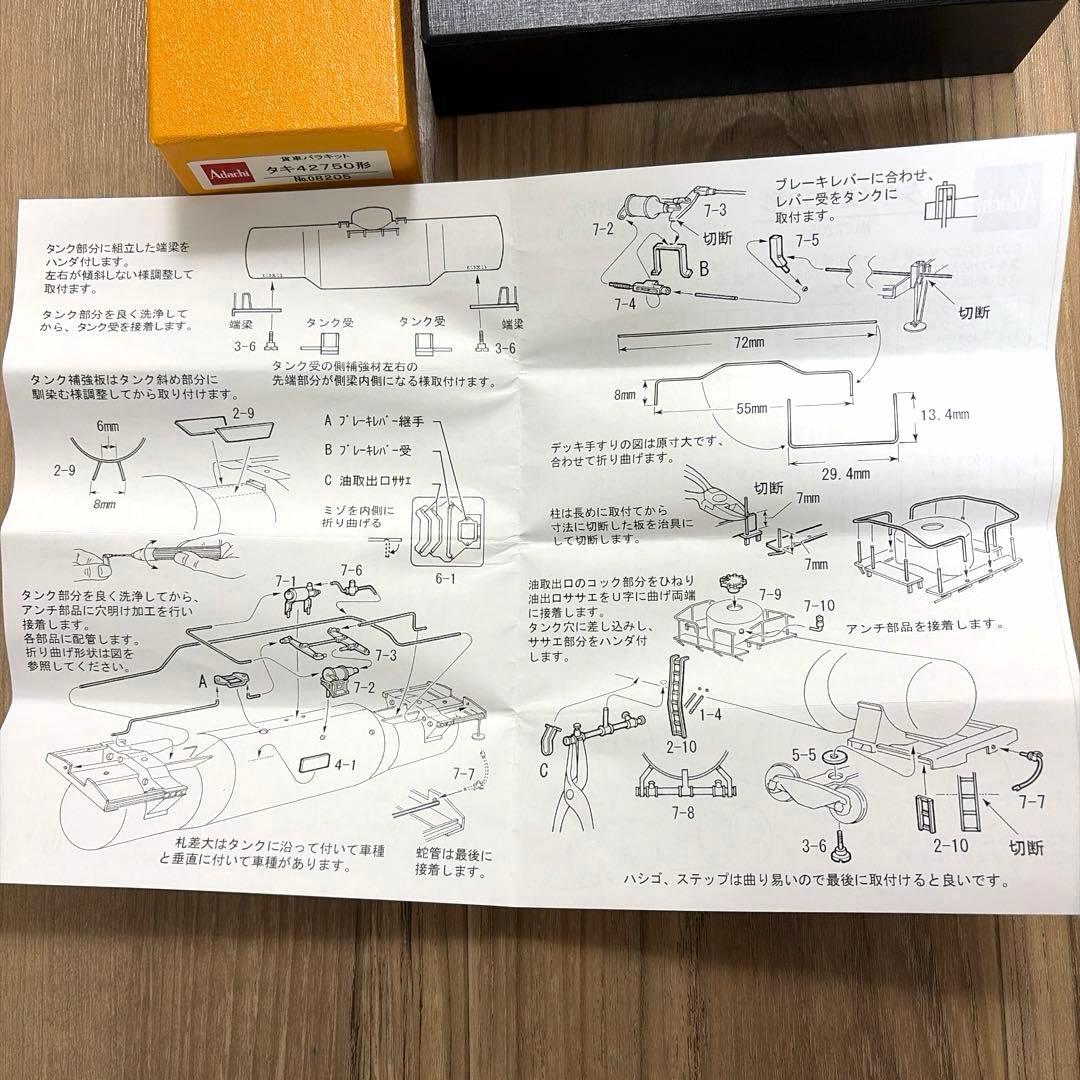 Adachi
貨車バラキット
タキ42750形
No.08205
タンク部分に組立した端梁を
ハンダ付します。
左右が傾斜しない様調整して
取付ます。
タンク部分を良く洗浄して
から、タンク受を接着します。
端梁
タンク受
タンク受
端梁
3-6
3-6
タンク受の側補強材左右の
先端部分が側梁内側になる様取付けます。
タンク補強板はタンク斜め部分に
馴染む様調整してから取り付けます。
6mm
2-9
2-9
8mm
A ブレーキレバー継手
B ブレーキレバー受
C 油取出口ササエ
ミゾを内側に
折り曲げる
6-1
タンク部分を良く洗浄してから、
アンチ部品に穴明け加工を行い
接着します。
各部品に配管します。
折り曲げ形状は図を
参照してください。
7-1
7-6
7-3
A
7-2
4-1
7-7
札差大はタンクに沿って付いて車種
と垂直に付いて車種があります。
蛇管は最後に
接着します。
7-2
7-3
切断
B
7-4
7-5
ブレーキレバーに合わせ、
レバー受をタンクに
取付ます。
切断
72mm
8mm
55mm
13.4mm
29.4mm
デッキ手すりの図は原寸大です、
合わせて折り曲げます。
切断
7mm
7mm
柱は長めに取付てから
寸法に切断した板を治具に
して切断します。
油取出口のコック部分をひねり
油出口ササエをU字に曲げ両端
に接着します。
タンク穴に差し込みし、
ササエ部分をハンダ付
します。
7-9
7-10
アンチ部品を接着します。
C
1-4
2-10
7-8
5-5
3-6
2-10
7-7
切断
ハシゴ、ステップは曲り易いので最後に取付けると良いです。